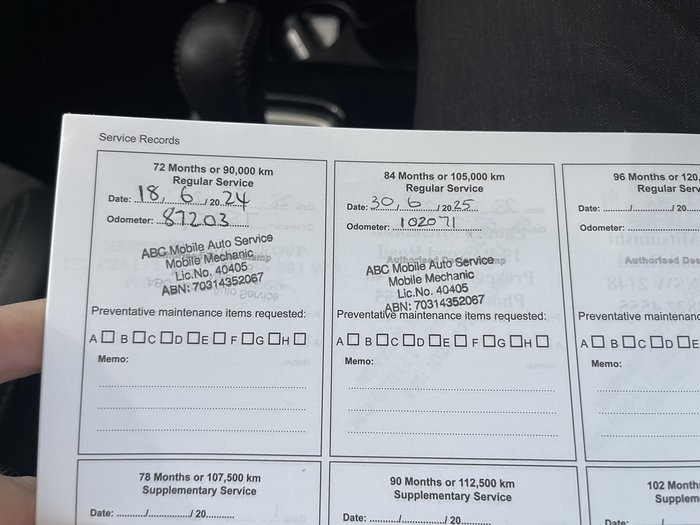 Service Records
72 Months or 90,000 km
Regular Service
Date: 18, 6 / 20 24
Odometer: 87203
ABC Mobile Auto Service
Mobile Mechanic
Lic.No. 40405
ABN: 70314352067
Preventative maintenance items requested:
A B C D E F G H
Memo:
84 Months or 105,000 km
Regular Service
Date: 30, 6 / 20 25
Odometer: 102071
ABC Mobile Auto Service
Mobile Mechanic
Lic.No. 40405
ABN: 70314352067
Preventative maintenance items requested:
A B C D E F G H
Memo:
96 Months or 120,
Regular Serv
Date: / / 20
Odometer:
Authorised Dea
Preventative maintenanc
A B C D E
Memo:
78 Months or 107,500 km
Supplementary Service
Date: / / 20
90 Months or 112,500 km
Supplementary Service
Date: / / 20
102 Month
Supplem
Date: /